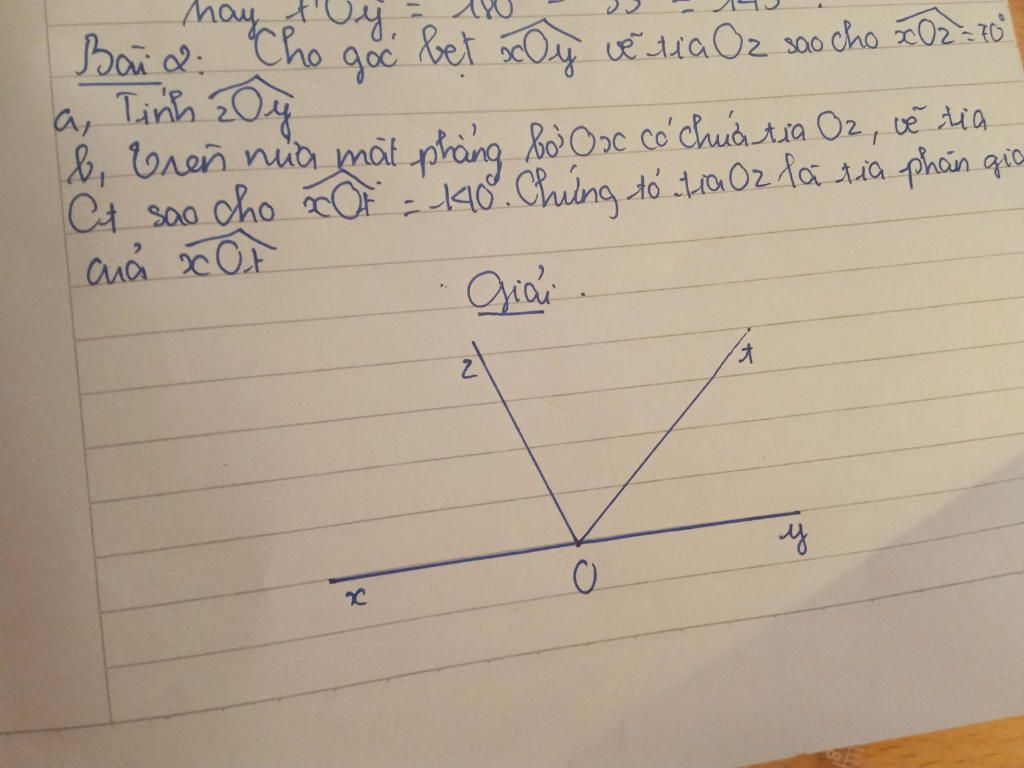 hay tOy = 180 - 35 = 145.
Bài 2: Cho góc bẹt xOy vẽ tia Oz sao cho xOz = 70°
a, Tính zOy
b, Trên nửa mặt phẳng bờ Ox có chứa tia Oz, vẽ tia
Ot sao cho xOt = 140°. Chứng tỏ tia Oz là tia phân giá
của xOt
Giải.
z
t
y
O
x